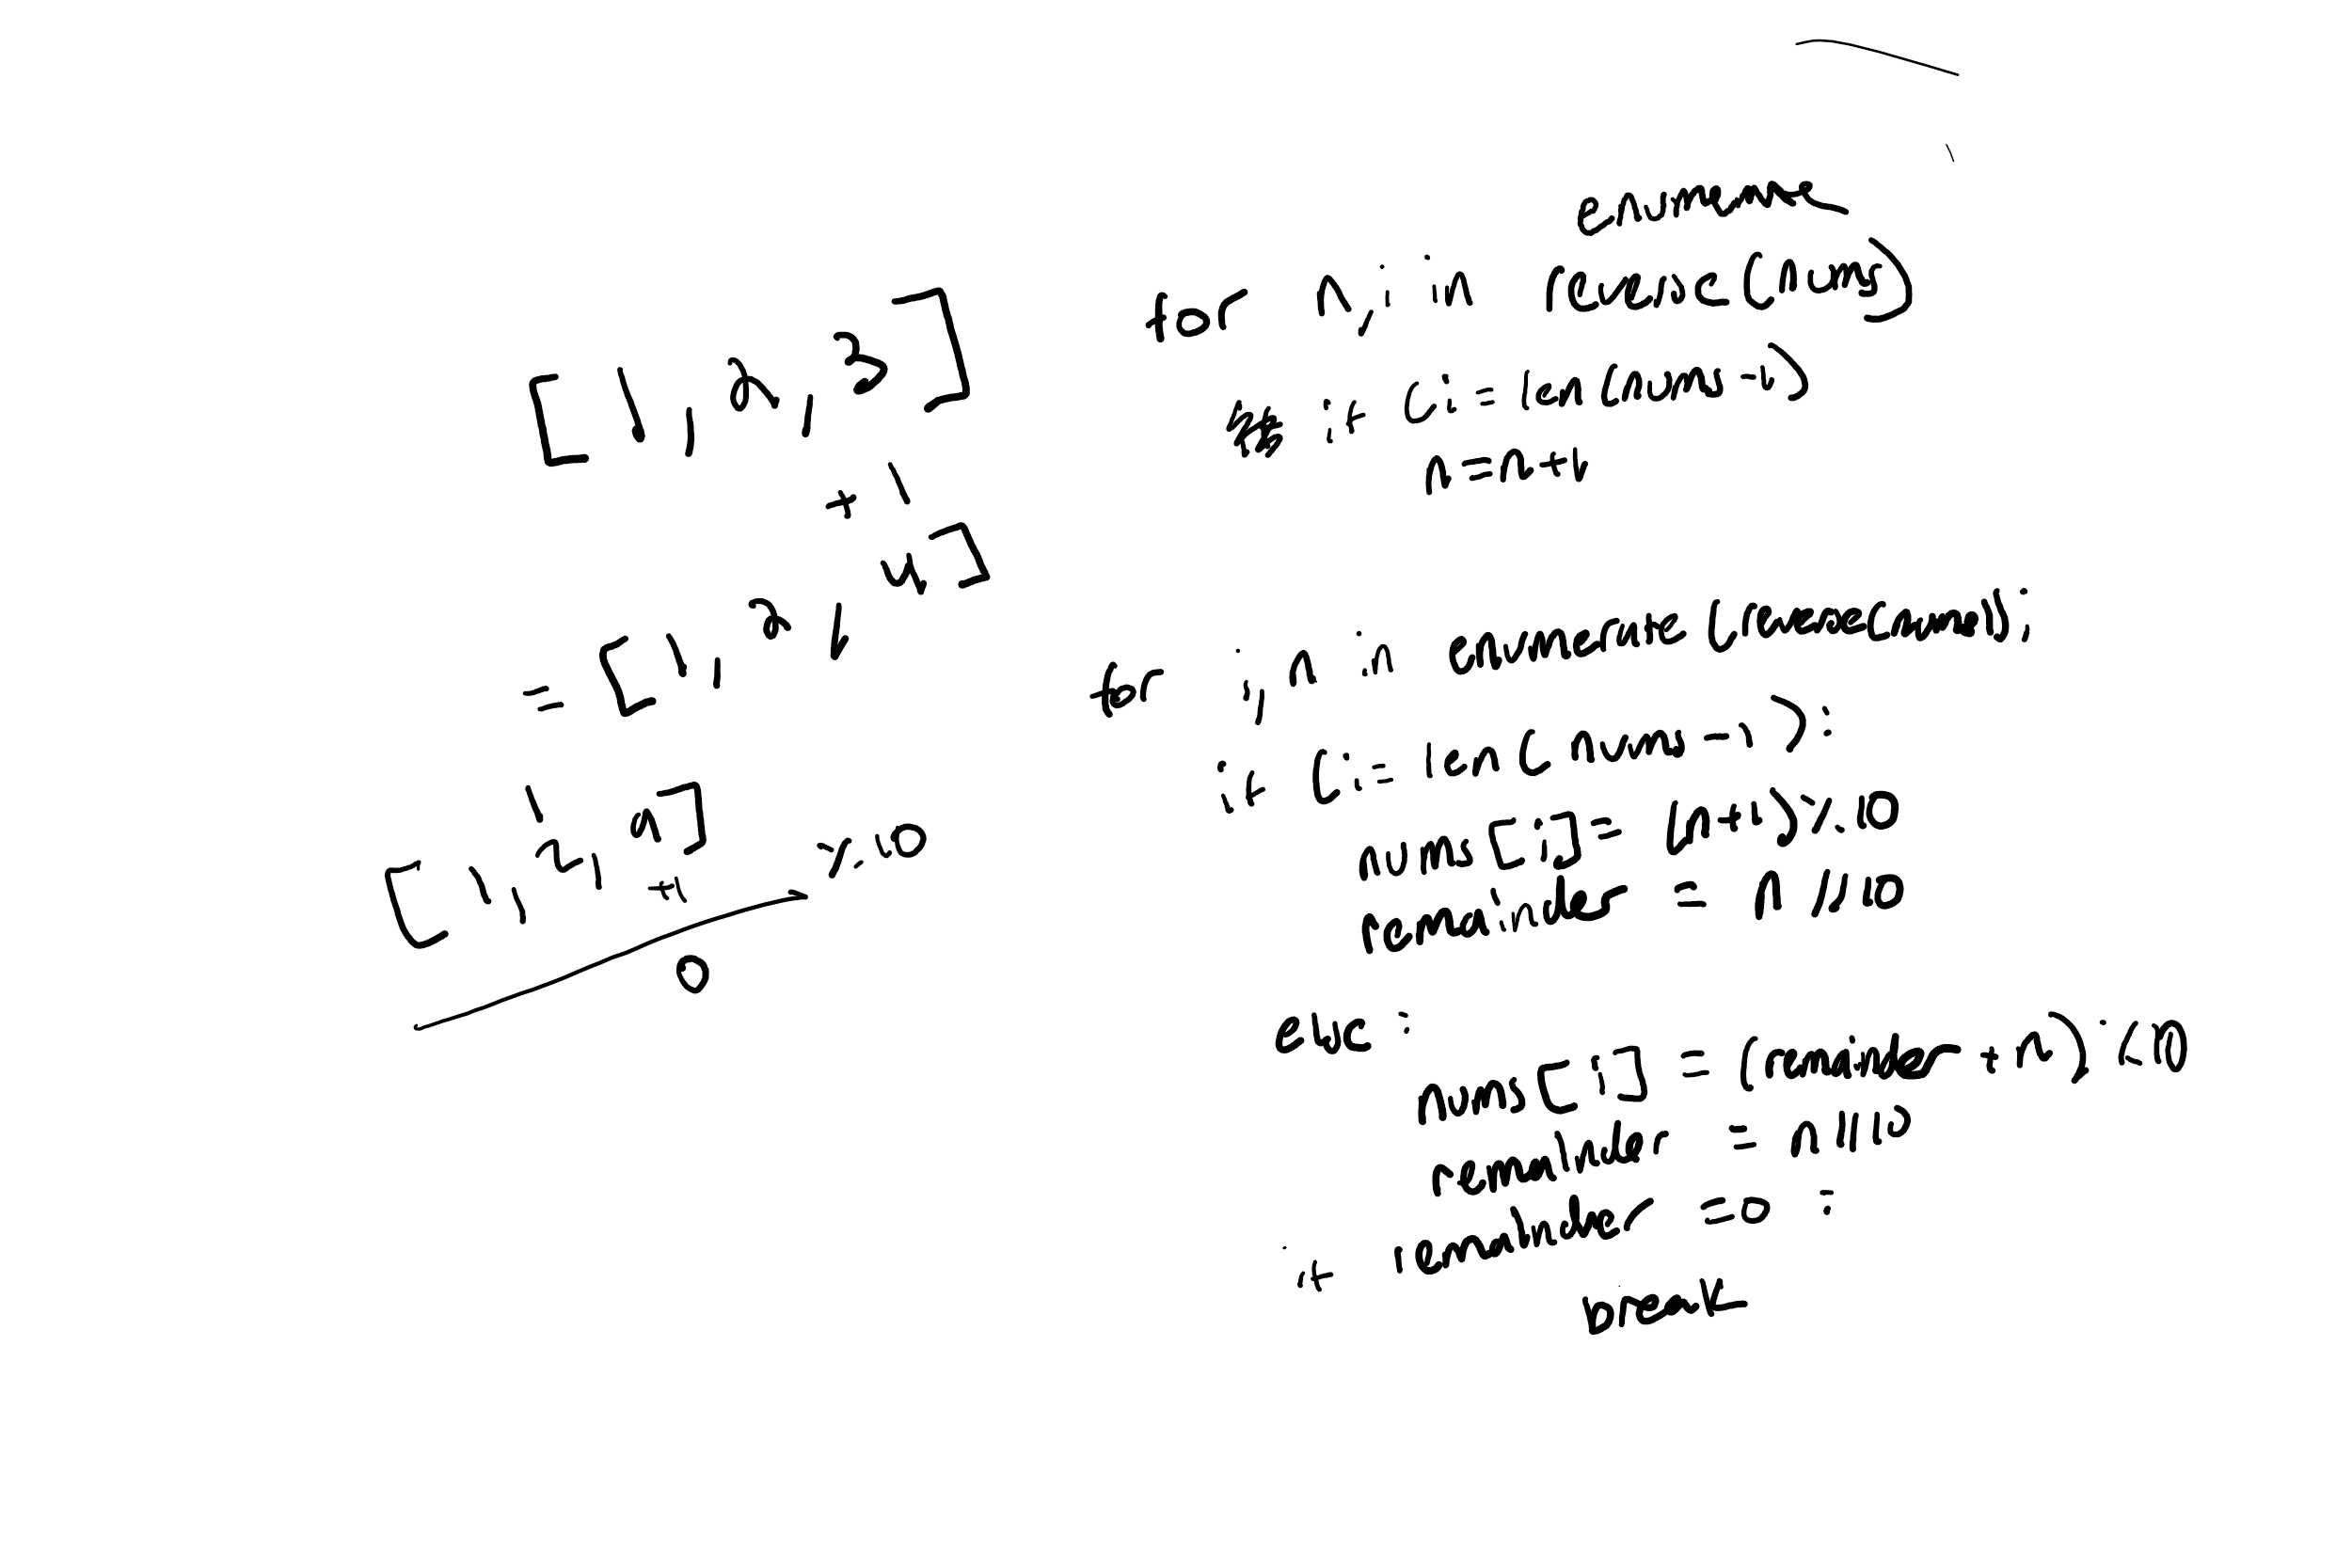 [1, 2, 3]
+ 1
= [1, 2, 4]
1
[1, 2, 9]
+1
% 10
0
for n, i in reverse(nums)
if (i = len(nums-1)
n = n+1
for i, n in enumerate (reverse(nums)):
if (i = len(nums-1):
nums[i] = (n+1) % 10
remainder = n // 10
else :
nums[i] = (remainder + n) % 10
remainder = n // 10
if remainder = 0 :
break